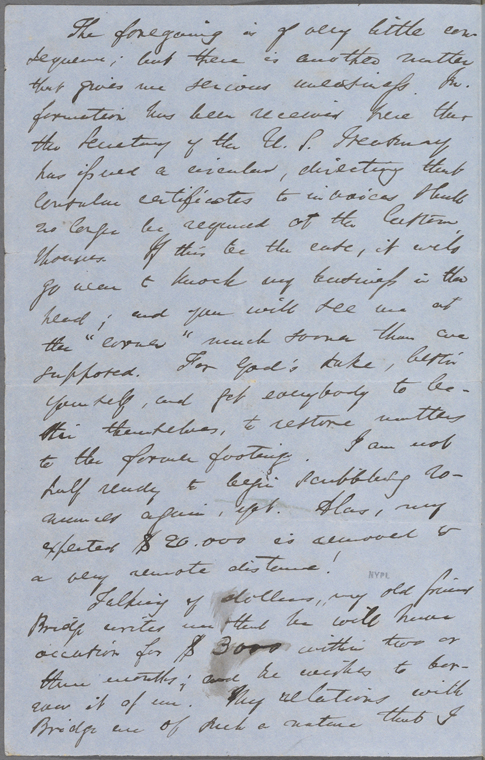 The foregoing is of very little con-
sequence; but there is another matter
that gives me serious uneasiness. In-
formation has been received here that
the Secretary of the U. S. Treasury
has issued a circular, directing that
Consular certificates to invoices shall
no longer be required at the Custom
Houses. If this be the case, it will
go near to knock my business in the
head; and you will see me at
the "corner" much sooner than we
supposed. For God's sake, bestir
yourself, and get everybody to be-
stir themselves, to restore matters
to the former footing. I am not
half ready to begin scribbling ro-
mances again, yet. Alas, my
expected $20.000 is removed to
a very remote distance!
NYPL
Talking of dollars, my old friend
Bridge writes me that he will have
occasion for $3000 within two or
three months; and he wishes to bor-
row it of me. My relations with
Bridge are of such a nature that I